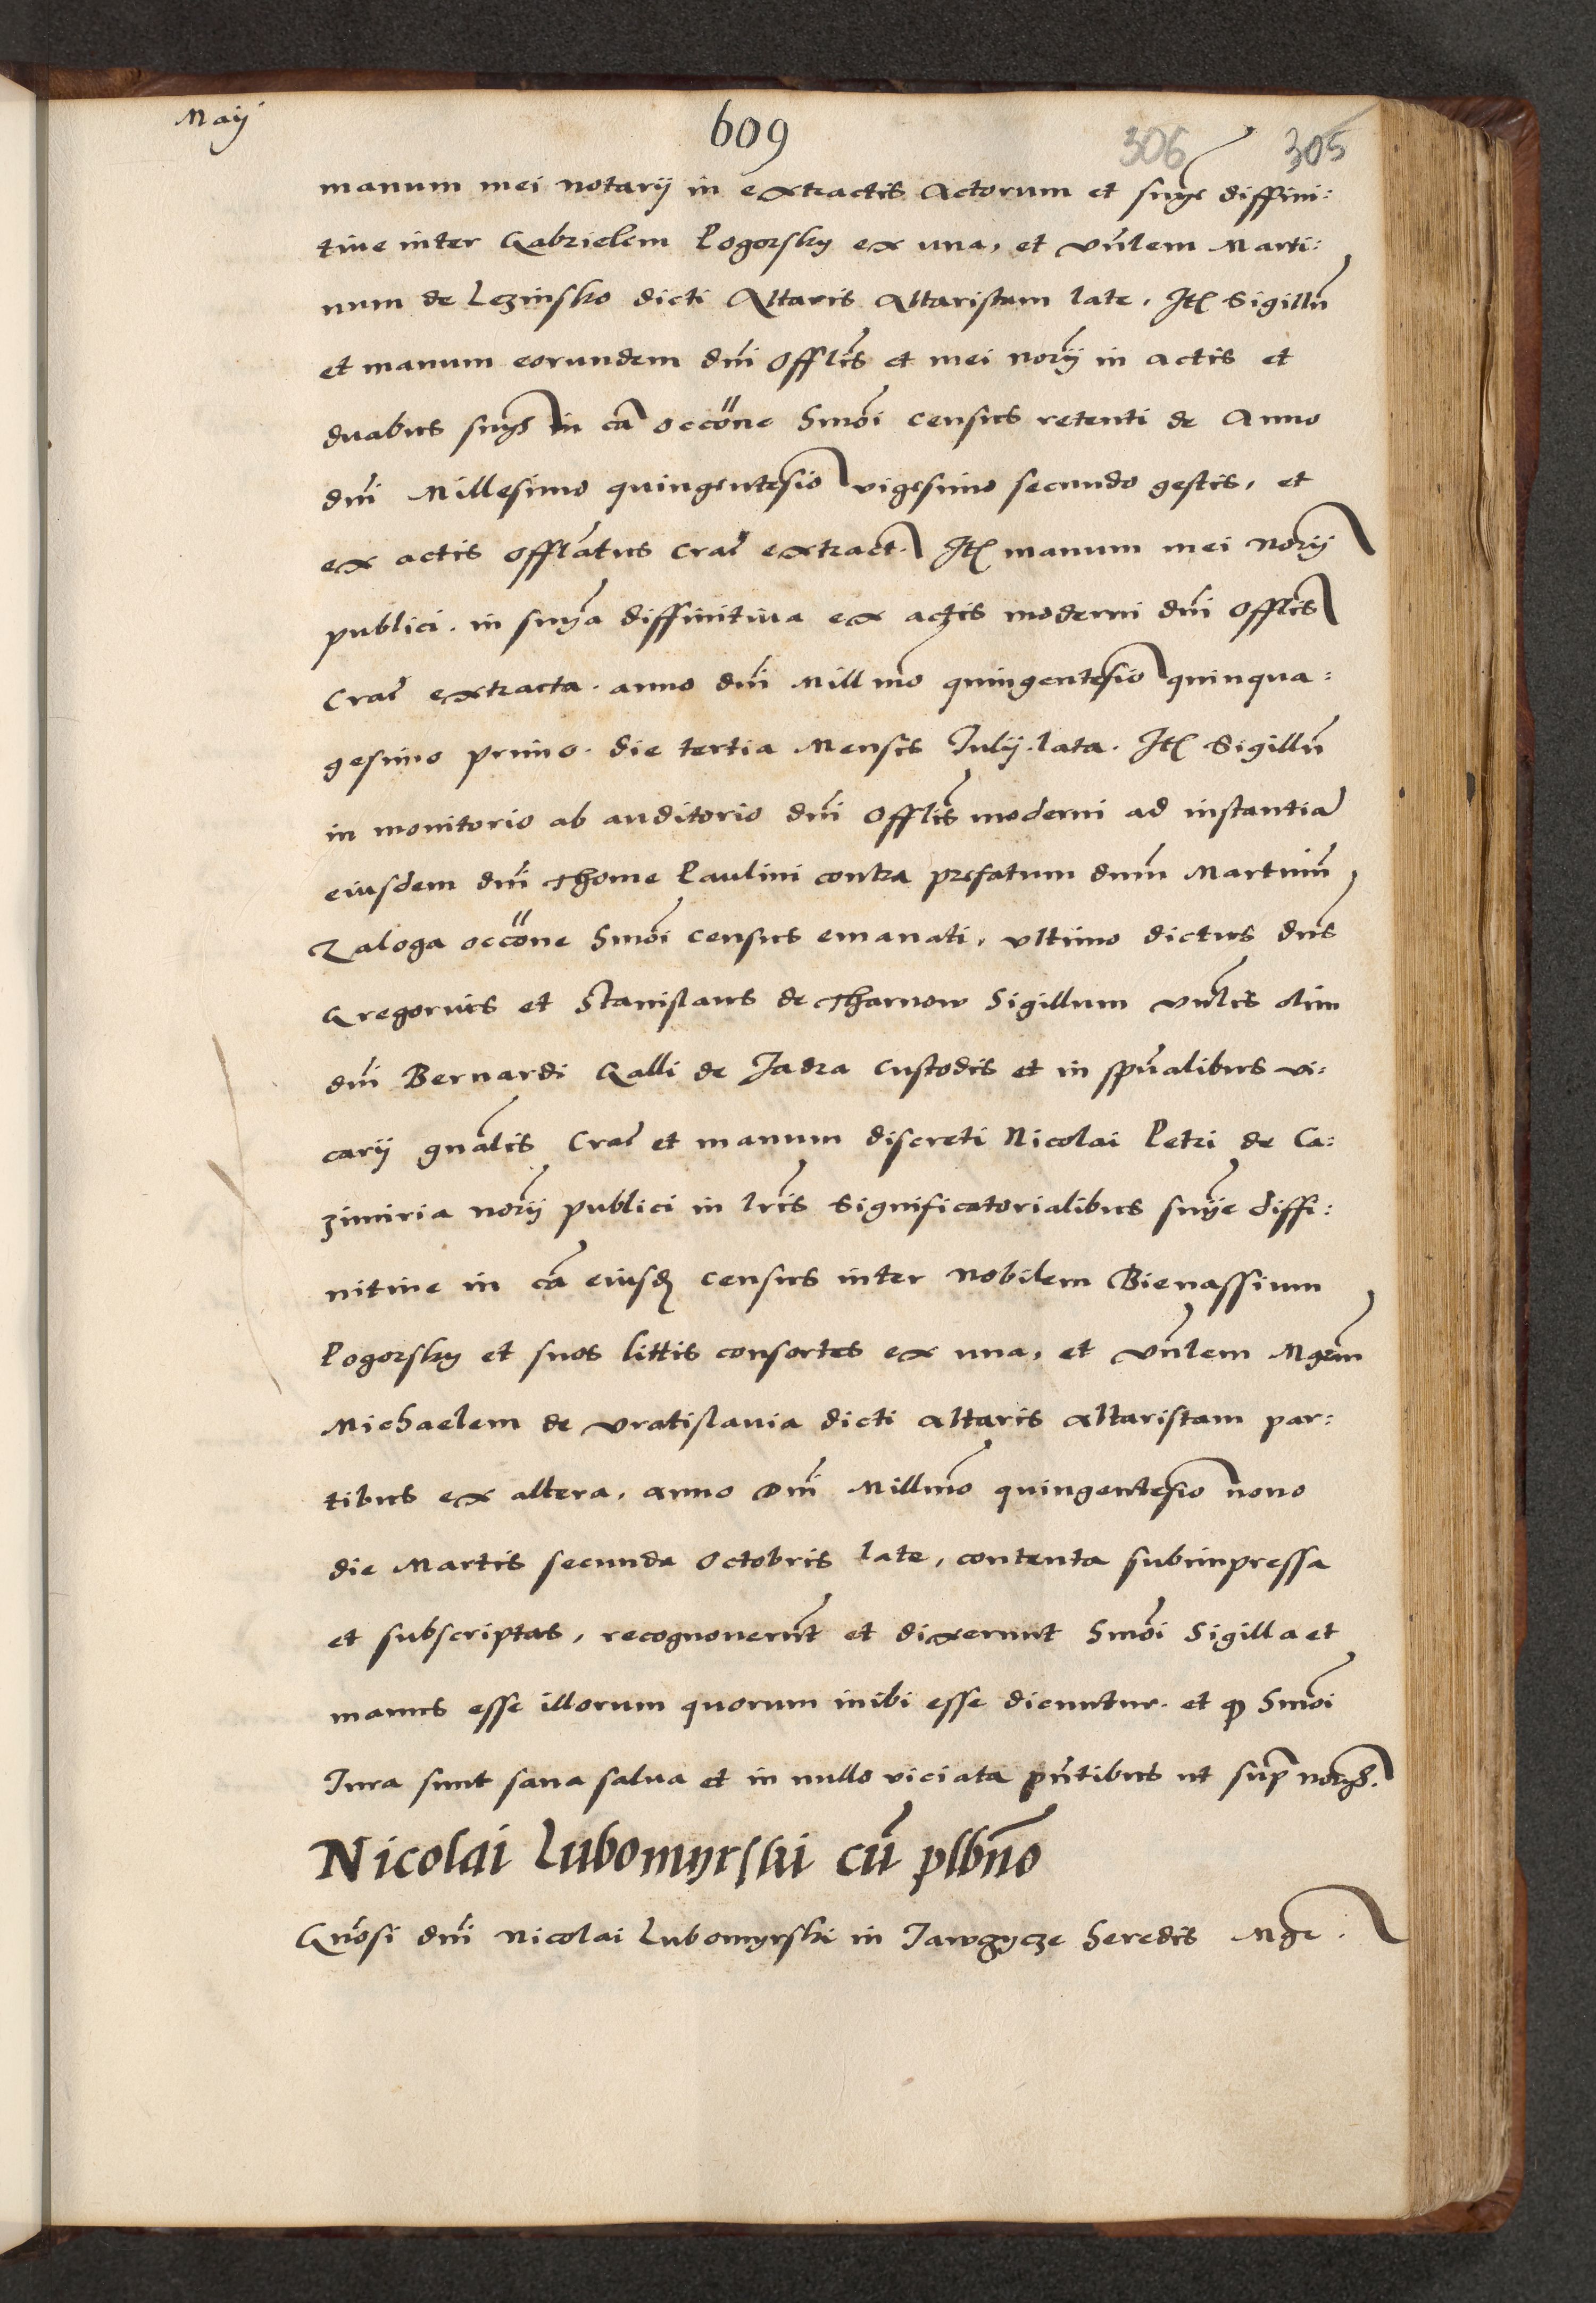 Maij
609
306 305
manum mei notarij in extractis Actorum et snÿe diffini:
tiue inter Gabrielem Pogorsky ex una, et vn̄lem Marti:
num de Lezinsko dicti Altaris Altaristam late, Itē Sigillū
et manum eorundem dn̄i Offlīs et mei norīj in actis et
duabus snÿs in cā occōne Hmōi census retenti de Anno
dn̄i Millesimo quingentesīo vigesimo secundo gestis, et
ex actis offlātus Crac̄ extract. Itē manum mei norīj
publici. in snÿa diffinitiua ex actis moderni dn̄i Offlīs
Crac̄ extracta. anno dn̄i Millmō quingentesīo quinqua:
gesimo primo. die tertia Mensis Julij. lata. Itē Sigillū
in monitorio ab auditorio dn̄i Offlīs moderni ad instantiā
eiusdem dn̄i Thome Paulini contra prefatum dnm̄ Martinū
Zaloga occōne Hmōi census emanati, vltimo dictus dn̄s
Gregorius et Stanislaus de Tharnow Sigillum vn̄lis olim
dn̄i Bernardi Galli de Jadra Custodis et in spūalibus vi:
carij gnālis Crac̄ et manum discreti Nicolai Petri de Ca:
zimiria norīj publici in lrīs significatorialibus snÿe diffi:
nitiue in cā eiusdē census inter Nobilem Bienassium
Pogorsky et suos littis consortes ex una, et vn̄lem Mgrm̄
Michaelem de vratislauia dicti altaris altaristam par:
tibus ex altera, anno Dn̄i Millmō quingentesīo nono
die Martis secunda Octobris late, contenta subimpressa
et subscriptas, recognouerūt et dixerunt Hmōi Sigilla et
manus esse illorum quorum inibi esse dicuntur. et ꝙ Hmōi
Jura sunt sana salua et in nullo viciata pn̄tibus ut supͣ norÿs.
Nicolai Lubomyrski cū plbn̄o
Gn̄osi dn̄i Nicolai Lubomyrski in Jawczycze heredis